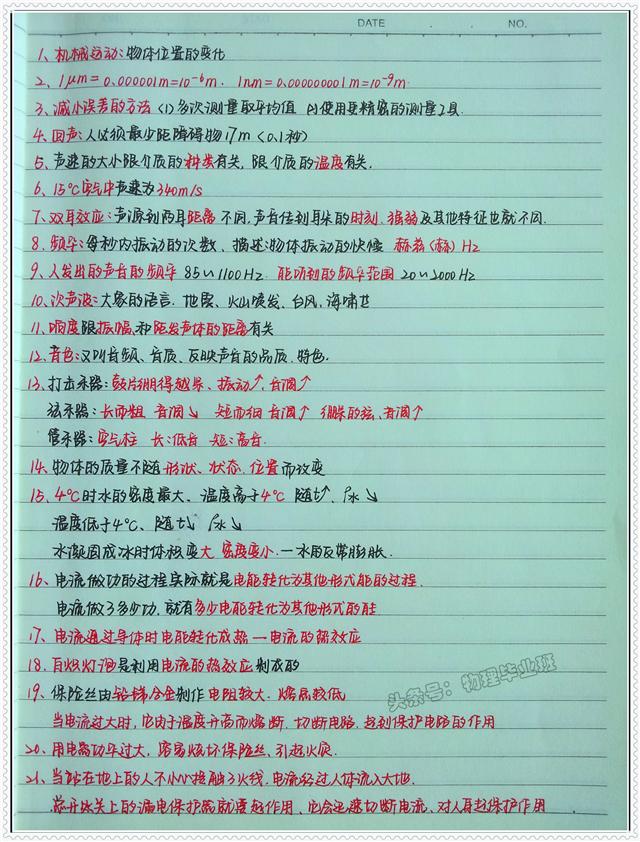 DATE . . NO.
1、机械运动:物体位置的变化
2、1μm=0.000001m=10⁻⁶m. 1nm=0.000000001m=10⁻⁹m.
3、减小误差的方法 (1)多次测量取平均值 (2)使用更精密的测量工具.
4、回声:人必须最少距障碍物17m(0.1秒)
5、声速的大小跟介质的种类有关,跟介质的温度有关.
6、15℃空气中声速为340m/s
7、双耳效应:声源到两耳距离不同,声音传到耳朵的时刻、强弱及其他特征也就不同.
8、频率:每秒内振动的次数、描述物体振动的快慢 赫兹(赫) Hz
9、人发出的声音的频率85~1100Hz. 能听到的频率范围20~2000Hz
10、次声波:大象的语言、地震、火山喷发、台风、海啸
11、响度跟振幅和距发声体的距离有关
12、音色:又叫音频、音质、反映声音的品质、特色.
13、打击乐器:鼓片绷得越紧、振动↑音调↑
弦乐器:长而粗 音调↓ 短而细 音调↑ 绷紧的弦、音调↑
管乐器:空气柱 长:低音 短:高音.
14、物体的质量不随形状、状态、位置而改变
15、4℃时水的密度最大、温度高于4℃ 随t↑、ρ水↓
温度低于4℃、随t↓ ρ水↓
水凝固成冰时体积变大 密度变小.—水的反常膨胀.
16、电流做功的过程实际就是电能转化为其他形式能的过程.
电流做了多少功,就有多少电能转化为其他形式的能
17、电流通过导体时电能转化成热—电流的热效应
18、白炽灯泡是利用电流的热效应制成的
19、保险丝由铅锑合金制作 电阻较大、熔点较低
当电流过大时,它由于温度升高而熔断,切断电路,起到保护电路的作用
20、用电器功率过大,容易烧坏保险丝、引起火灾.
21、当站在地上的人不小心接触了火线,电流经过人体流入大地.
总开关上的漏电保护器就要起作用、它会迅速切断电流、对人起保护作用
头条号:物理毕业班